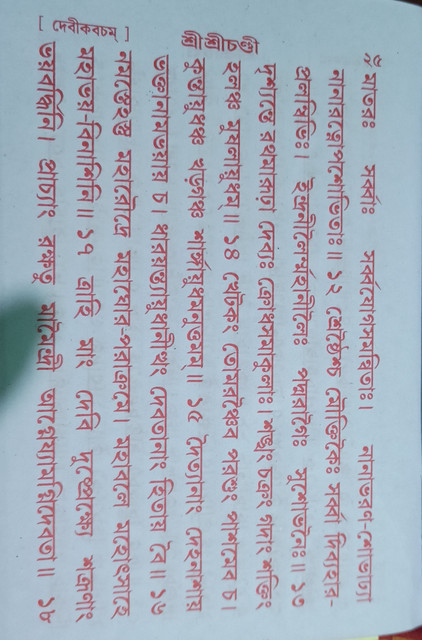 [ দেবীকবচম্ ]
শ্রীশ্রীচণ্ডী
৫
মাতরঃ সর্ব্বাঃ সর্ব্বযোগসমন্বিতাঃ। নানাভরণ-শোভাঢ্যা
নানারত্নোপশোভিতাঃ॥ ১২ শ্রৈষ্ঠৈশ্চ মৌক্তিকৈঃ সর্ব্বা দিব্যহার-
প্রলম্বিভিঃ। ইন্দ্রনীলৈর্ম্মহানীলৈঃ পদ্মরাগৈঃ সুশোভনৈঃ॥ ১৩
দৃশ্যন্তে রথমারূঢ়া দেব্যঃ ক্রোধসমাকুলাঃ। শঙ্খং চক্রং গদাং শক্তিং
হলঞ্চ মুষলায়ুধম্॥ ১৪ খেটকং তোমরঞ্চৈব পরশুং পাশমেব চ।
কুন্তায়ুধঞ্চ খড়্গঞ্চ শার্ঙ্গায়ুধমনুত্তমম্॥ ১৫ দৈত্যানাং দেহনাশায়
ভক্তানামভয়ায় চ। ধারয়ন্ত্যায়ুধানীত্থং দেবতানাং হিতায় বৈ॥ ১৬
নমস্তেঽস্তু মহারৌদ্রে মহাঘোর-পরাক্রমে। মহাবলে মহোৎসাহে
মহাভয়-বিনাশিনি॥ ১৭ ত্রাহি মাং দেবি দুষ্প্রেক্ষ্যে শত্রূণাং
ভয়বর্দ্ধিনি। প্রাচ্যাং রক্ষতু মামৈন্দ্রী আগ্নেয্যামগ্নিদেবতা॥ ১৮